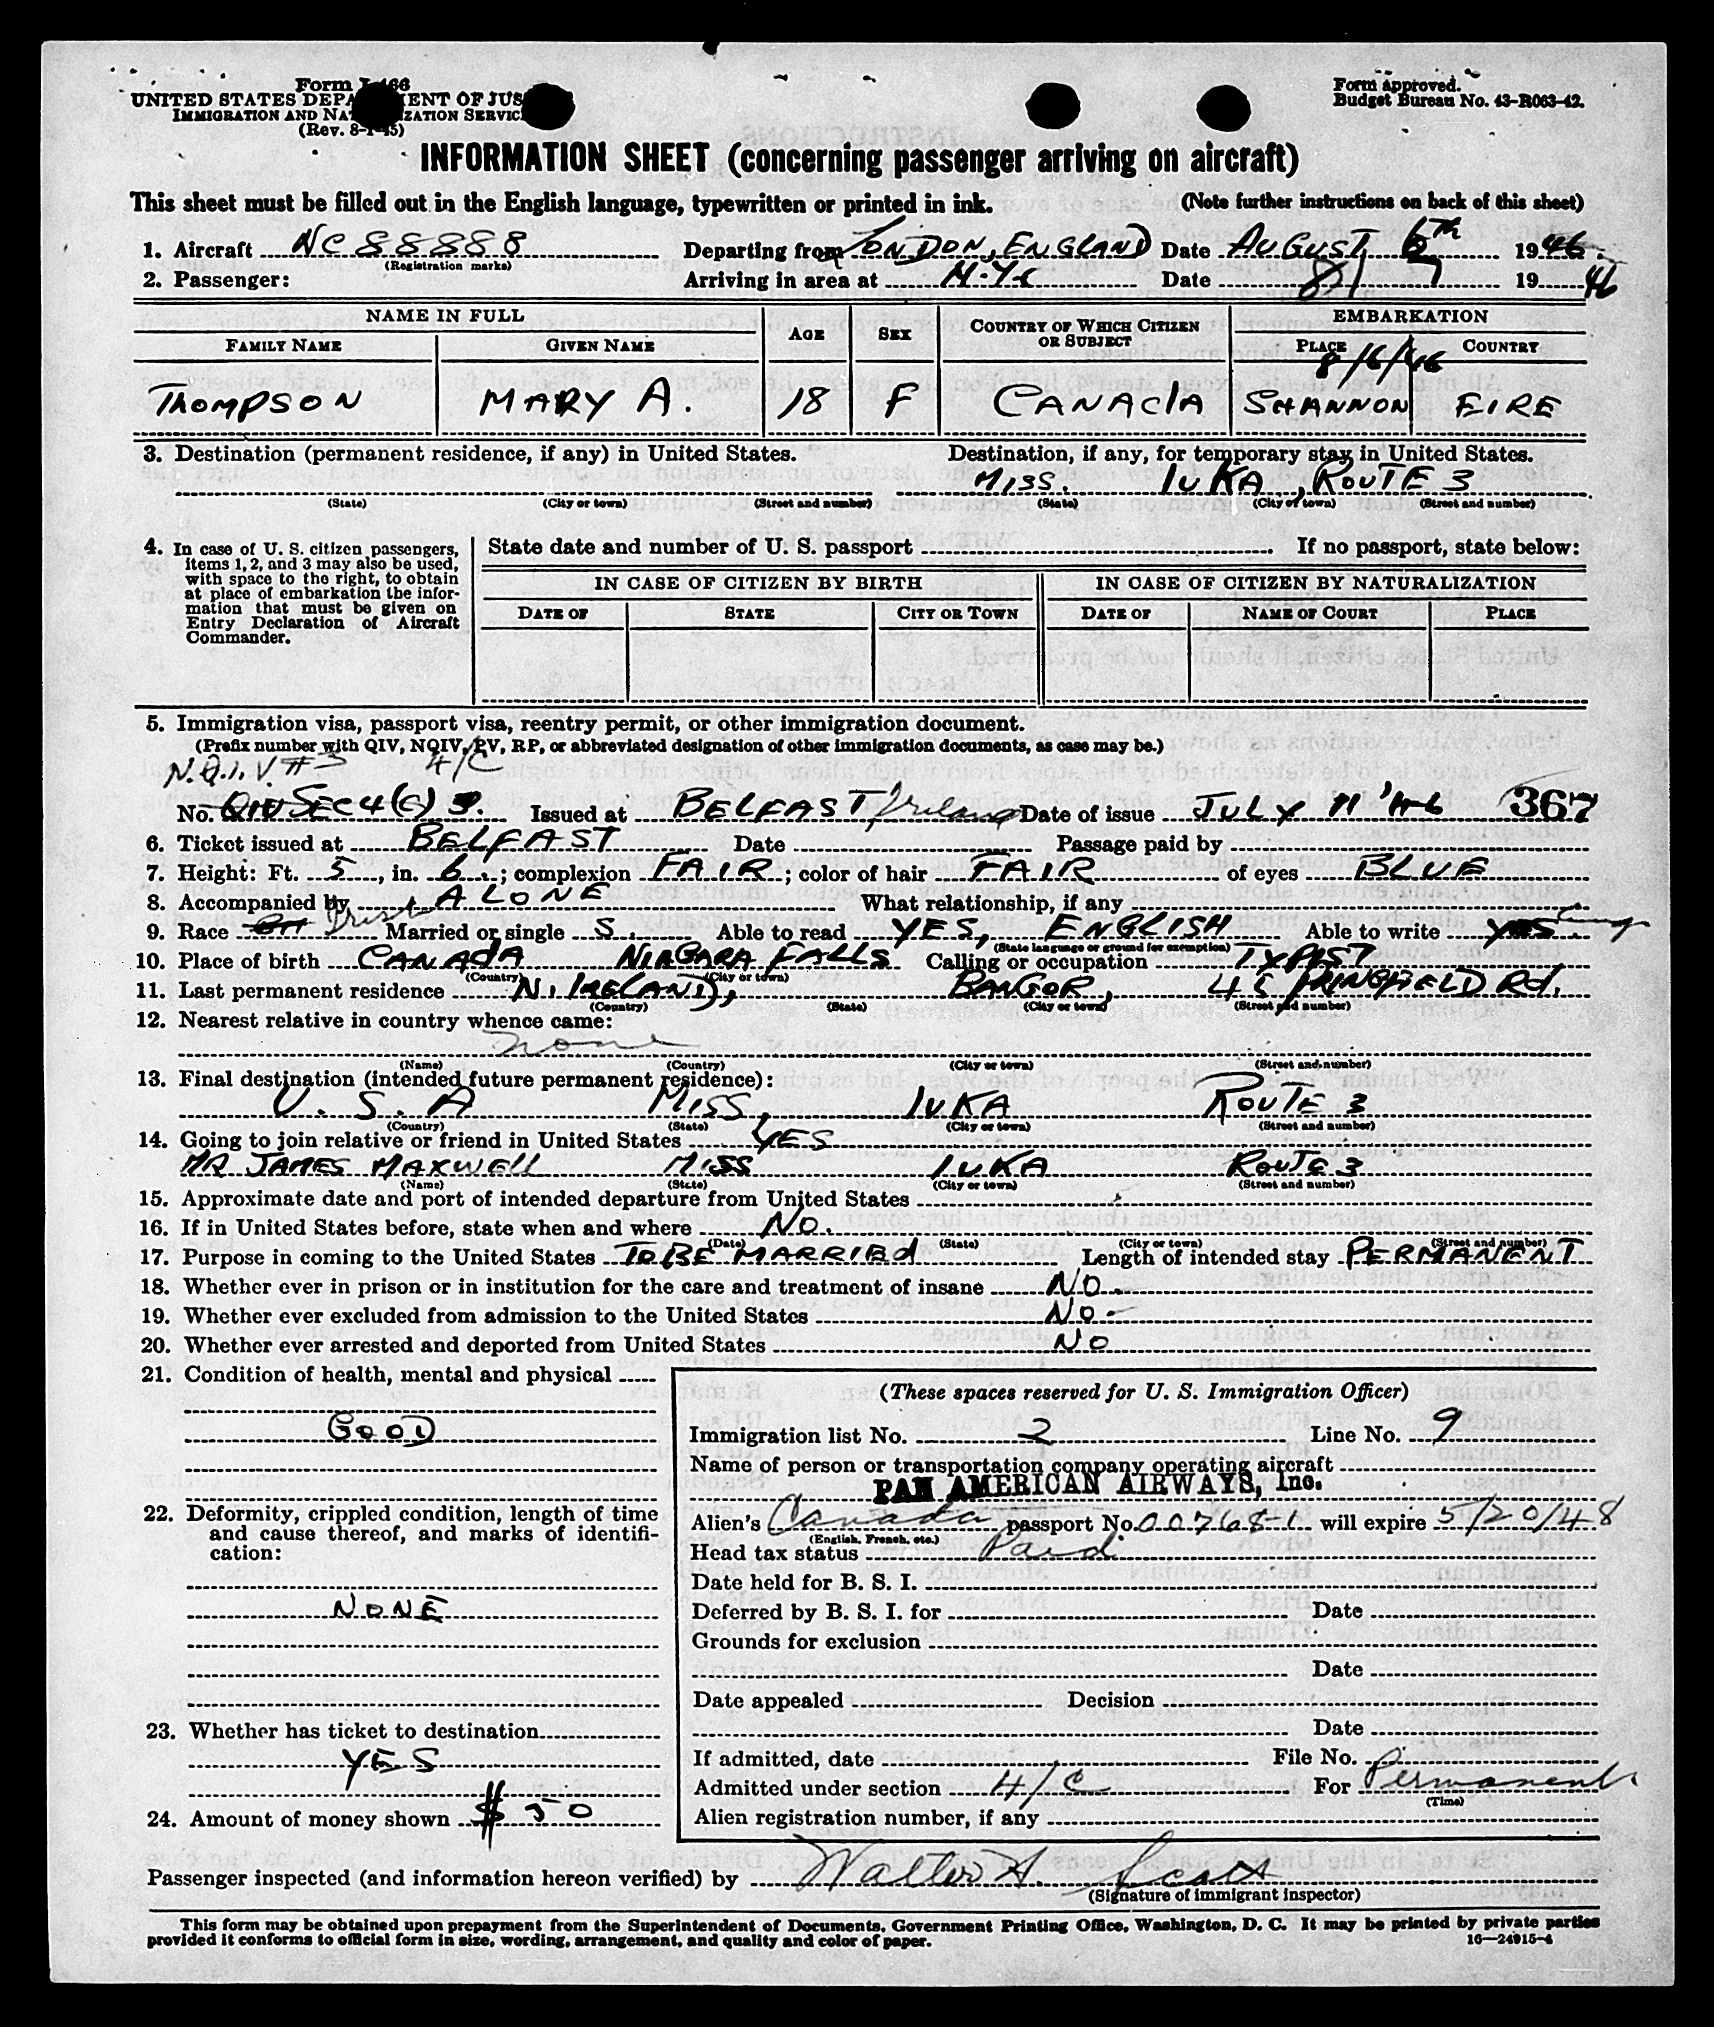 Form I-466
UNITED STATES DEPARTMENT OF JUSTICE
IMMIGRATION AND NATURALIZATION SERVICE
(Rev. 8-1-45)
Form approved.
Budget Bureau No. 43-R063-42.
INFORMATION SHEET (concerning passenger arriving on aircraft)
This sheet must be filled out in the English language, typewritten or printed in ink. (Note further instructions on back of this sheet)
1. Aircraft NC 88888 Departing from LONDON, ENGLAND Date AUGUST 6th 1946.
(Registration marks)
2. Passenger: Arriving in area at N.Y.C Date 8/7 1946
NAME IN FULL AGE SEX COUNTRY OF WHICH CITIZEN OR SUBJECT EMBARKATION
FAMILY NAME GIVEN NAME PLACE COUNTRY
8/6/46
THOMPSON MARY A. 18 F CANADA SHANNON EIRE
3. Destination (permanent residence, if any) in United States. Destination, if any, for temporary stay in United States.
MISS. IUKA, ROUTE 3
(State) (City or town) (Street and number) (State) (City or town) (Street and number)
4. In case of U. S. citizen passengers, items 1, 2, and 3 may also be used, with space to the right, to obtain at place of embarkation the information that must be given on Entry Declaration of Aircraft Commander.
State date and number of U. S. passport If no passport, state below:
IN CASE OF CITIZEN BY BIRTH IN CASE OF CITIZEN BY NATURALIZATION
DATE OF STATE CITY OR TOWN DATE OF NAME OF COURT PLACE
5. Immigration visa, passport visa, reentry permit, or other immigration document.
(Prefix number with QIV, NQIV, PV, RP, or abbreviated designation of other immigration documents, as case may be.)
N.Q.I.V #3 4/C
No. QIV SEC 4(C) 3. Issued at BELFAST Ireland Date of issue JULY 11 '46 367
6. Ticket issued at BELFAST Date Passage paid by
7. Height: Ft. 5, in. 6.; complexion FAIR; color of hair FAIR of eyes BLUE
8. Accompanied by ALONE What relationship, if any
9. Race Irish Married or single S. Able to read YES, ENGLISH Able to write YES.
(State language or ground for exemption)
10. Place of birth CANADA NIAGARA FALLS Calling or occupation TYPIST
(Country) (City or town)
11. Last permanent residence N. IRELAND, BANGOR, 45 SPRINGFIELD Rd.
(Country) (State) (City or town) (Street and number)
12. Nearest relative in country whence came:
none
(Name) (Country) (City or town) (Street and number)
13. Final destination (intended future permanent residence):
U.S.A MISS, IUKA ROUTE 3
(Country) (State) (City or town) (Street and number)
14. Going to join relative or friend in United States YES
MR JAMES MAXWELL MISS IUKA ROUTE 3
(Name) (State) (City or town) (Street and number)
15. Approximate date and port of intended departure from United States
16. If in United States before, state when and where NO.
(Date) (State) (City or town) (Street and number)
17. Purpose in coming to the United States TO BE MARRIED Length of intended stay PERMANENT
18. Whether ever in prison or in institution for the care and treatment of insane NO.
19. Whether ever excluded from admission to the United States NO.
20. Whether ever arrested and deported from United States NO
21. Condition of health, mental and physical
GOOD
22. Deformity, crippled condition, length of time and cause thereof, and marks of identification:
NONE
23. Whether has ticket to destination
YES
24. Amount of money shown $50
(These spaces reserved for U. S. Immigration Officer)
Immigration list No. 2 Line No. 9
Name of person or transportation company operating aircraft
PAN AMERICAN AIRWAYS, Inc.
Alien's Canada passport No. 00768-1 will expire 5/20/48
(English, French, etc.)
Head tax status Paid
Date held for B. S. I.
Deferred by B. S. I. for Date
Grounds for exclusion
Date
Date appealed Decision
Date
If admitted, date File No.
Admitted under section 4/C For Permanent
(Time)
Alien registration number, if any
Passenger inspected (and information hereon verified) by Walter A. Scott
(Signature of immigrant inspector)
This form may be obtained upon prepayment from the Superintendent of Documents, Government Printing Office, Washington, D. C. It may be printed by private parties
provided it conforms to official form in size, wording, arrangement, and quality and color of paper. 16—24915-4